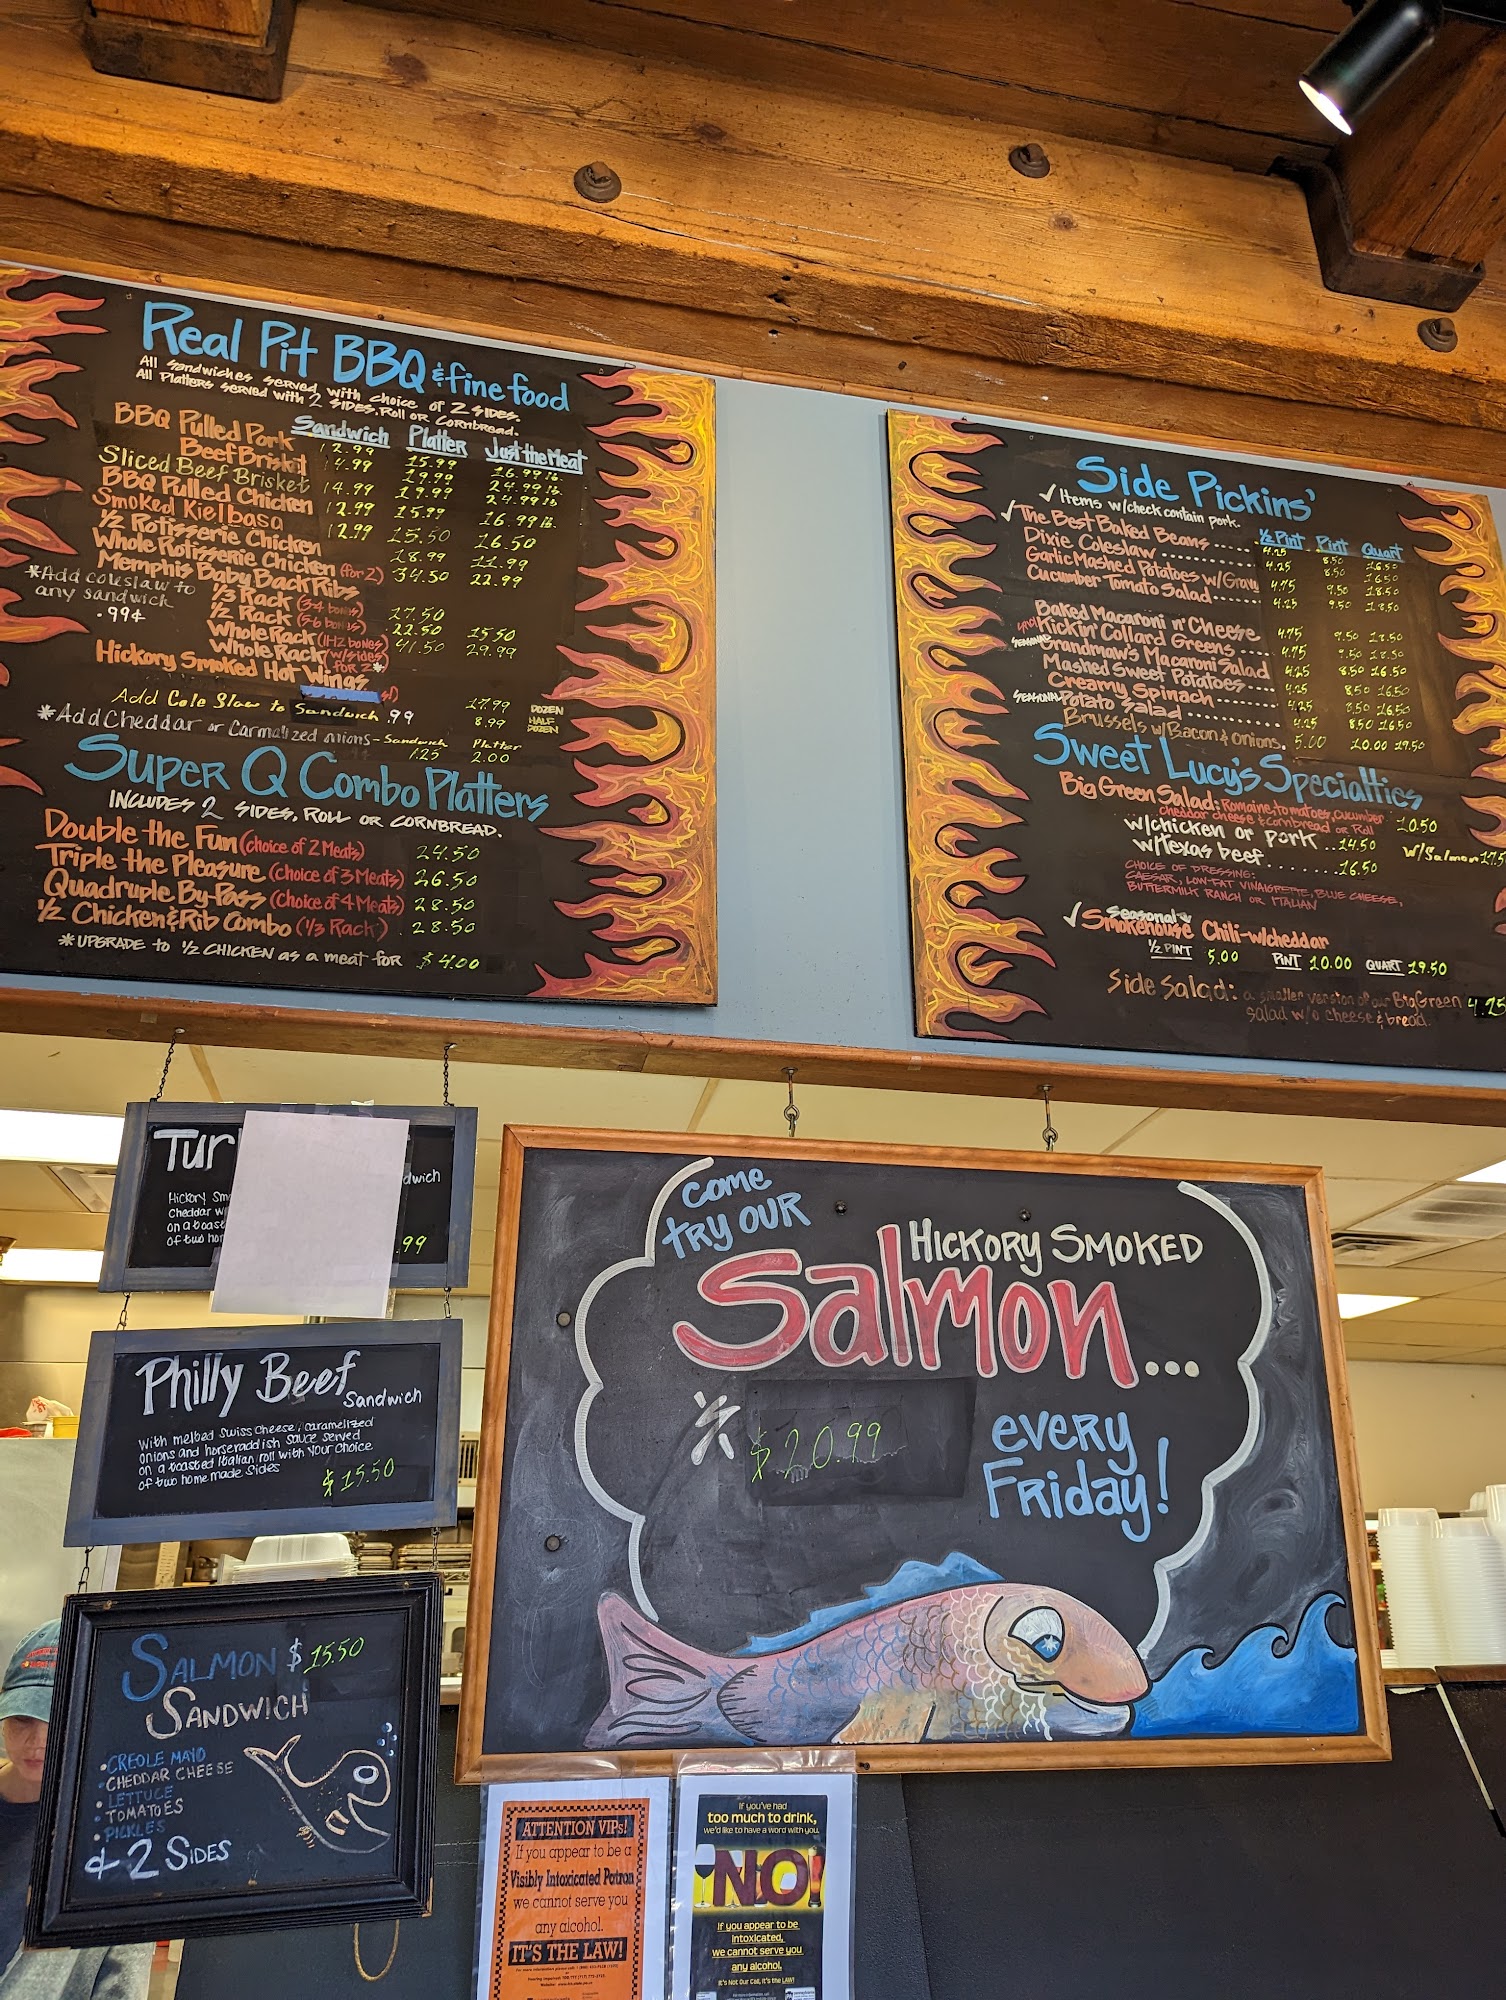 Real Pit BBQ & fine food
All sandwiches served with choice of 2 sides.
All Platters served with 2 sides, Roll or Cornbread.
Sandwich Platter Just the Meat
BBQ Pulled Pork 12.99 15.99 16.99 lb.
Beef Brisket 14.99 19.99 24.99 lb
Sliced Beef Brisket 14.99 19.99 24.99 lb
BBQ Pulled Chicken 12.99 15.99 16.99 lb.
Smoked Kielbasa 12.99 15.50 16.50
1/2 Rotisserie Chicken 18.99 11.99
Whole Rotisserie Chicken (for 2) 34.50 22.99
Memphis Baby Back Ribs
1/3 Rack (3-4 bones) 17.50
1/2 Rack (5-6 bones) 22.50 15.50
Whole Rack (11-12 bones) 41.50 29.99
Whole Rack (w/sides) for 2*
*Add coleslaw to
any sandwich
.99¢
Hickory Smoked Hot Wings
17.99 DOZEN
8.99 HALF DOZEN
Add Cole Slaw to Sandwich .99
*Add Cheddar or Carmalized onions - Sandwich Platter
1.25 2.00
Super Q Combo Platters
Includes 2 sides, Roll or Cornbread.
Double the Fun (choice of 2 Meats) 24.50
Triple the Pleasure (choice of 3 Meats) 26.50
Quadruple By-Pass (choice of 4 Meats) 28.50
1/2 Chicken & Rib Combo (1/3 Rack) 28.50
*Upgrade to 1/2 Chicken as a meat for $4.00
Side Pickins'
✓ Items w/check contain pork.
1/2 Pint Pint Quart
✓ The Best Baked Beans ..... 4.25 8.50 16.50
Dixie Coleslaw ........ 4.25 8.50 16.50
Garlic Mashed Potatoes w/Gravy 4.75 9.50 18.50
Cucumber Tomato Salad ..... 4.25 9.50 18.50
Baked Macaroni n' Cheese 4.75 9.50 18.50
Kickin' Collard Greens .... 4.75 9.50 18.50
SEASONAL Grandmaw's Macaroni Salad 4.25 8.50 16.50
Mashed Sweet Potatoes.... 4.25 8.50 16.50
Creamy Spinach ........ 4.25 8.50 16.50
SEASONAL Potato Salad .......... 4.25 8.50 16.50
Brussels w/ Bacon & Onions. 5.00 10.00 19.50
Sweet Lucy's Specialties
Big Green Salad: Romaine, tomatoes, cucumber
cheddar cheese & cornbread or Roll 10.50
w/chicken or pork ..14.50 w/Salmon 17.5
w/texas beef ........16.50
CHOICE OF DRESSING:
CAESAR, LOW-FAT VINAIGRETTE, BLUE CHEESE,
BUTTERMILK RANCH OR ITALIAN
Seasonal
✓ Smokehouse Chili-w/cheddar
1/2 PINT 5.00 PINT 10.00 QUART 19.50
Side Salad: a smaller version of our Big Green 4.25
Salad w/o cheese & bread.
Tur
dwich
Hickory Sm
Cheddar w
on a toast
of two ho
.99
Philly Beef
Sandwich
With melted Swiss cheese, caramelized
onions and horseraddish sauce served
on a toasted Italian roll with your choice
of two home made sides
$15.50
Salmon $15.50
Sandwich
• Creole Mayo
• Cheddar Cheese
• Lettuce
• Tomatoes
• Pickles
& 2 Sides
Come
try our
Hickory Smoked
Salmon...
* $20.99
every
Friday!
ATTENTION VIPs!
If you appear to be a
Visibly Intoxicated Patron
we cannot serve you
any alcohol.
IT'S THE LAW!
If you've had
too much to drink,
we'd like to have a word with you.
NO!
If you appear to be
intoxicated,
we cannot serve you
any alcohol.
It's Not Our Call, it's the LAW!